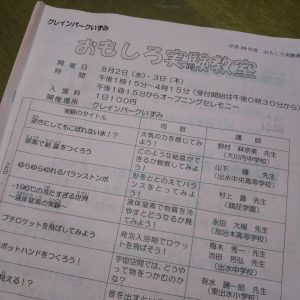 クレインパークいずみ
平成29年度 おもしろ実験教室
おもしろ実験教室
開催日 8月2日(水)・3日(木)
時間 午後1時15分〜4時15分(受付開始は午後0時30分から)
午後1時15分からオープニングセレモニー
入場料 1日100円
開催場所 クレインパークいずみ
実験のタイトル 内容 講師
逆さにしてもこぼれない水!? 大気の力を感じてみよう 野村 先生
(大川内中学校)
尿素で結晶をつくろう どのような結晶ができるか観察してみよう 山下 先生
(出水中央高等学校)
ゆらゆらゆれるバランストンボ 形をととのえてバランスをとってみよう! 村上 貴 先生
(鶴荘学園)
-196℃の冷たすぎる世界
~液体窒素の実験~ 液体窒素で物質を冷やすとどうなるか見てみよう! 永田 大樹 先生
(加治木高等学校)
プチロケットを飛ばしてみよう! 発泡入浴剤でロケットを飛ばそう! 梅木 秀一 先生
池田 芳弘 先生
(出水中学校)
ボットハンドをつくろう! 宇宙空間では、どうやって物をつかむのかな? 有水 勝一郎 先生
(東出水小学校)
見える!? 音を出すと